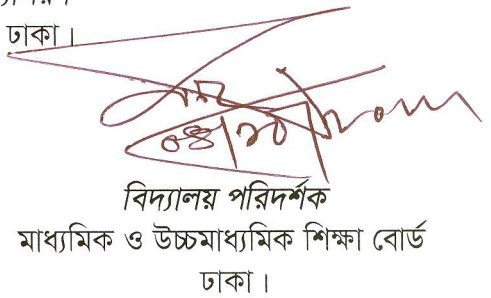 ঢাকা।
বিদ্যালয় পরিদর্শক
মাধ্যমিক ও উচ্চমাধ্যমিক শিক্ষা বোর্ড
ঢাকা।